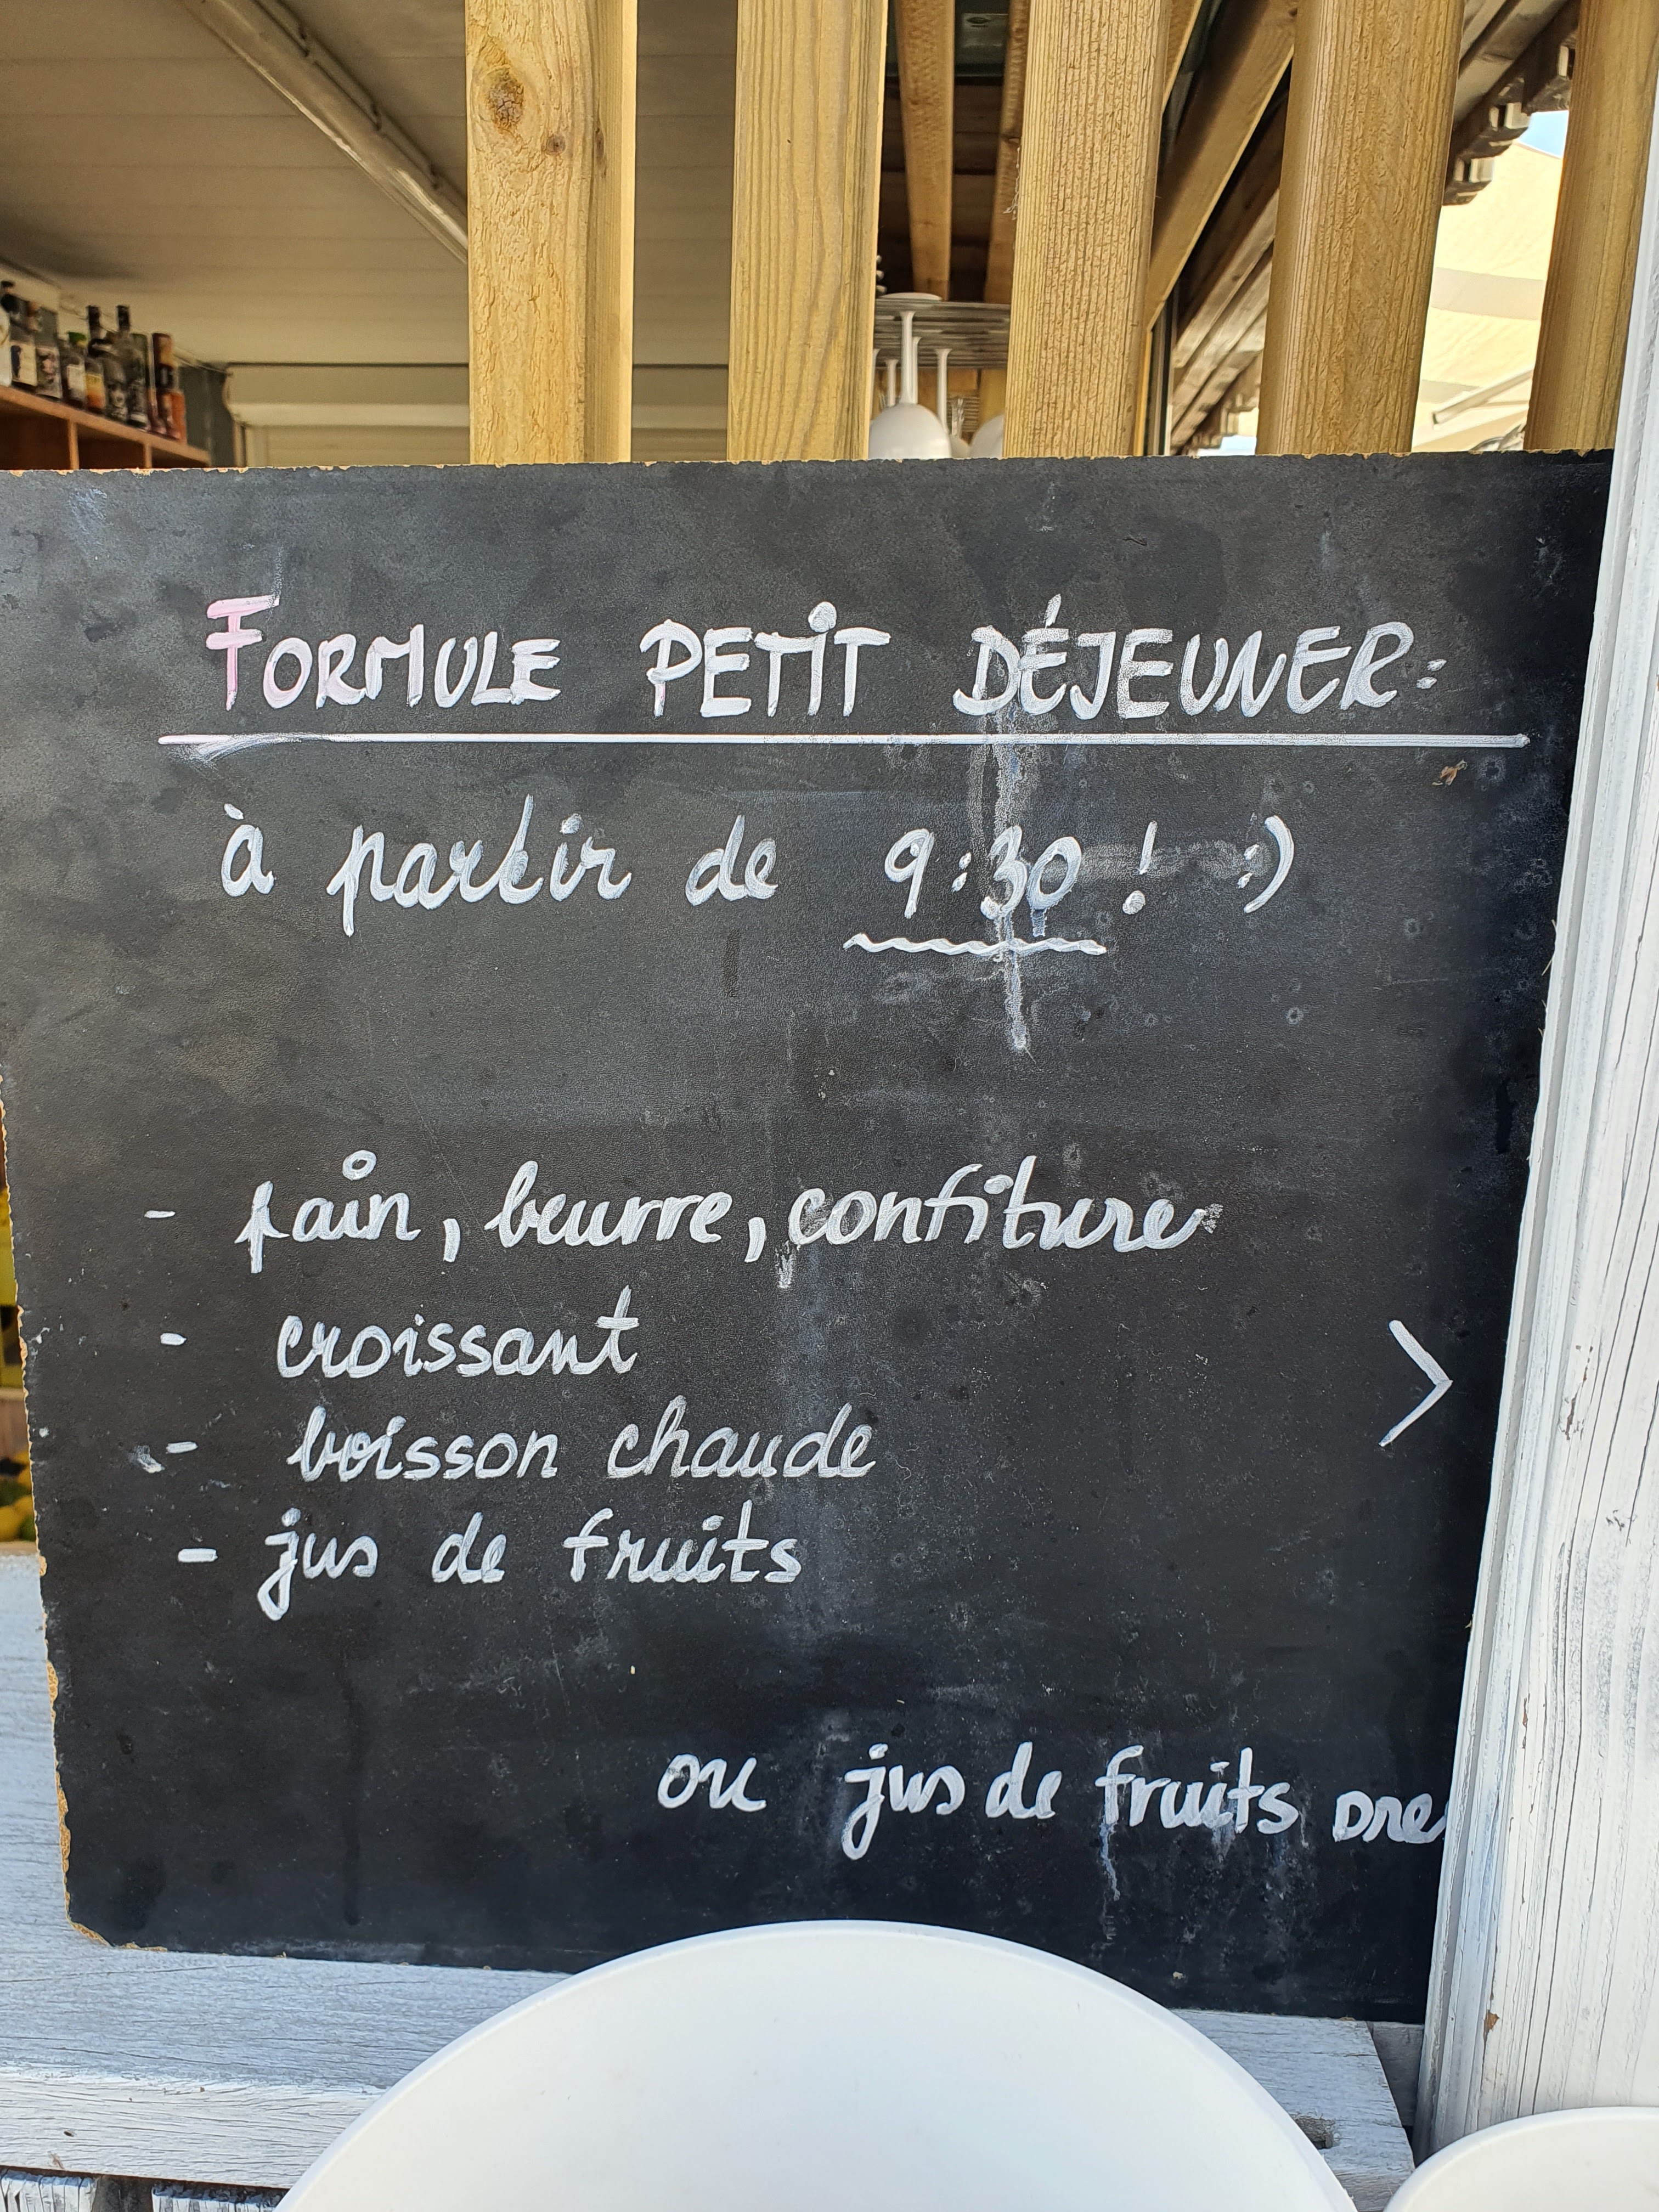 FORMULE PETIT DÉJEUNER:
à partir de 9:30 ! :)
- pain, beurre, confiture
- croissant
- boisson chaude
- jus de fruits
ou jus de fruits